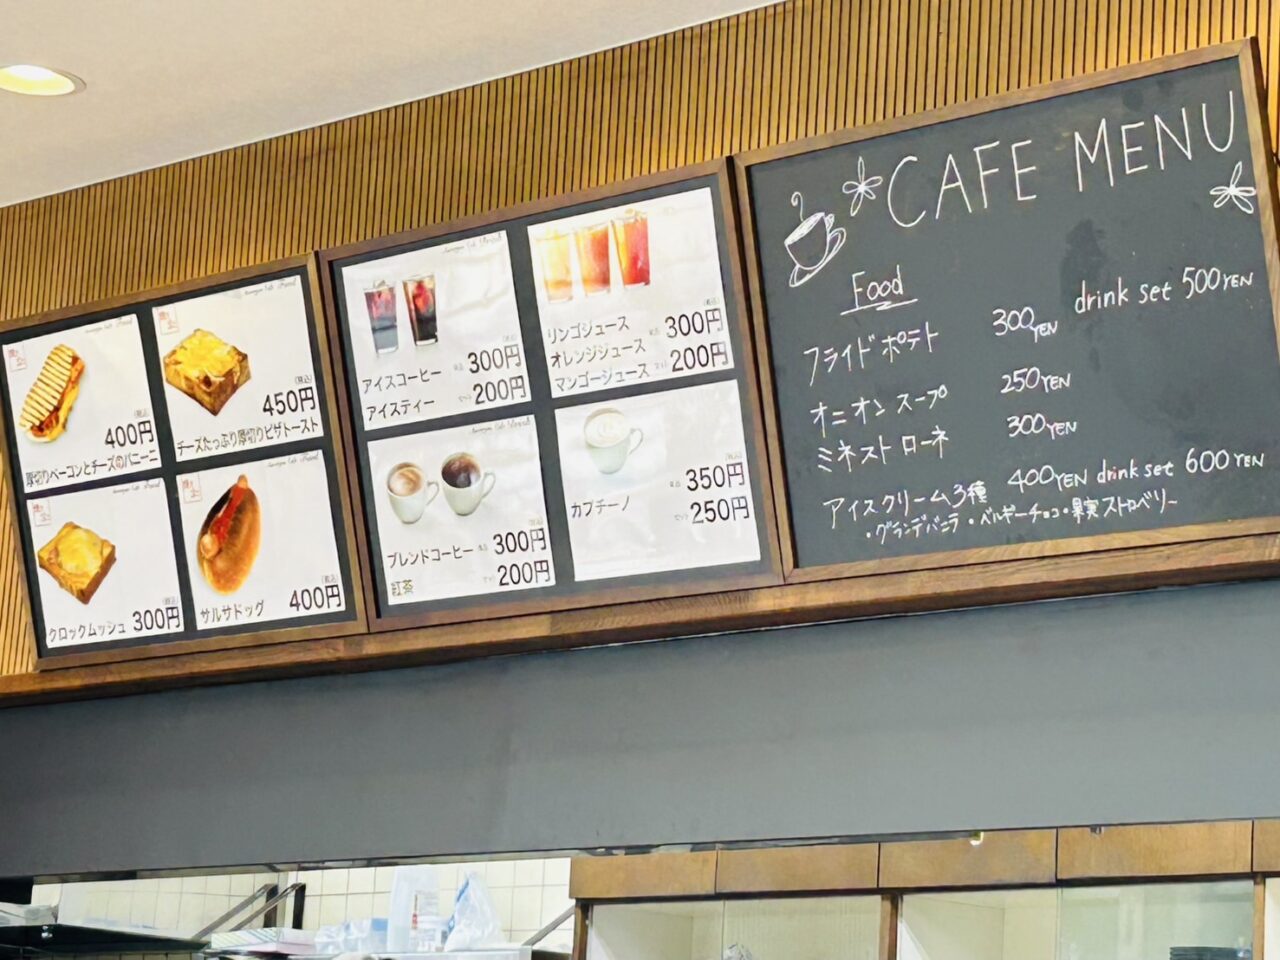 400円
厚切りベーコンとチーズのパニーニ
450円
チーズたっぷり厚切りピザトースト
クロックムッシュ 300円
サルサドッグ 400円
アイスコーヒー 単品 300円
アイスティー セット 200円
リンゴジュース
オレンジジュース 単品 300円
マンゴージュース セット 200円
ブレンドコーヒー 単品 300円
紅茶 セット 200円
カプチーノ 単品 350円
セット 250円
CAFE MENU
Food
フライドポテト 300YEN drink set 500YEN
オニオンスープ 250YEN
ミネストローネ 300YEN
アイスクリーム3種 400YEN drink set 600YEN
・グランデバニラ・ベルギーチョコ・果実ストロベリー